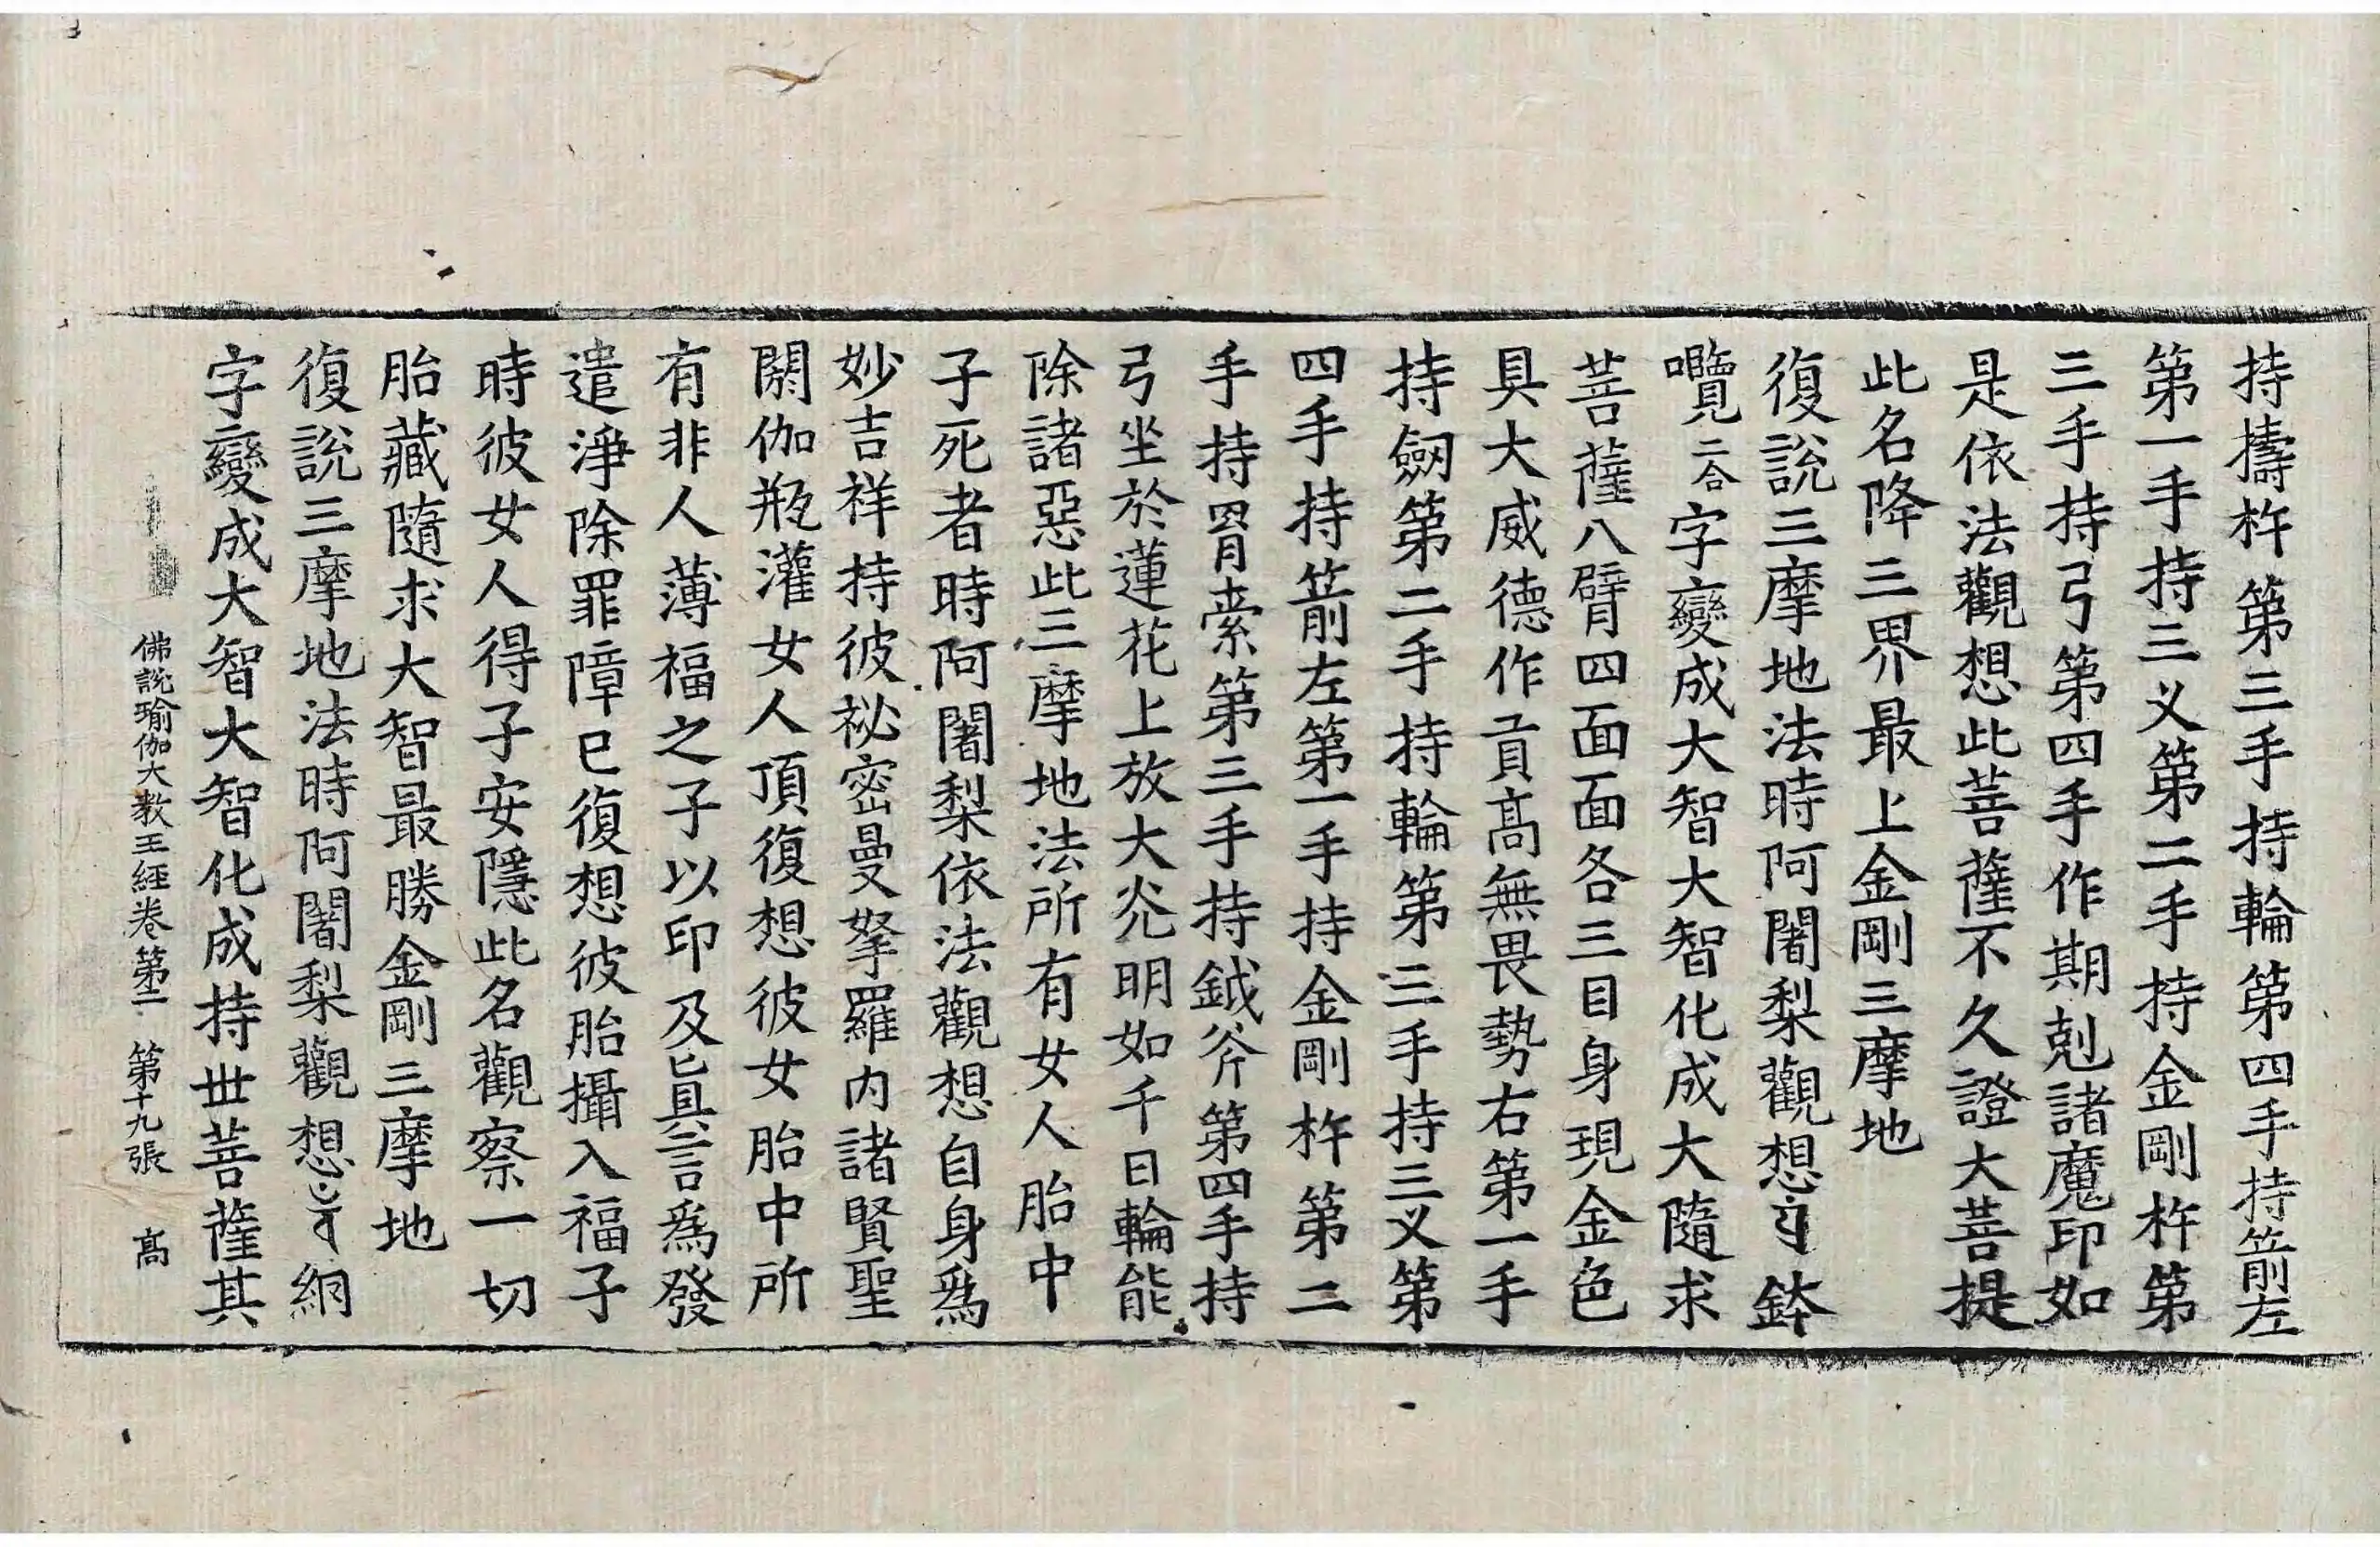 持擣杵第三手持輪第四手持箭左
第一手持三叉第二手持金剛杵第
三手持弓第四手作期剋諸魔印如
是依法觀想此菩薩不久證大菩提
此名降三界最上金剛三摩地
復說三摩地法時阿闍梨觀想鉢
囕二合字變成大智大智化成大隨求
菩薩八臂四面面各三目身現金色
具大威德作貢高無畏勢右第一手
持劒第二手持輪第三手持三叉第
四手持箭左第一手持金剛杵第二
手持羂索第三手持鉞斧第四手持
弓坐於蓮花上放大光明如千日輪能
除諸惡此三摩地法所有女人胎中
子死者時阿闍梨依法觀想自身爲
妙吉祥持彼祕密曼拏羅内諸賢聖
閼伽瓶灌女人頂復想彼女胎中所
有非人薄福之子以印及眞言爲發
遣淨除罪障已復想彼胎攝入福子
時彼女人得子安隱此名觀察一切
胎藏隨求大智最勝金剛三摩地
復說三摩地法時阿闍梨觀想綗
字變成大智大智化成持世菩薩其
佛說瑜伽大教王經卷第二 第十九張 高